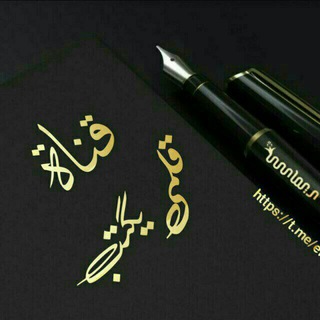 قناة
قلمي
يكتب
https://t.me/e